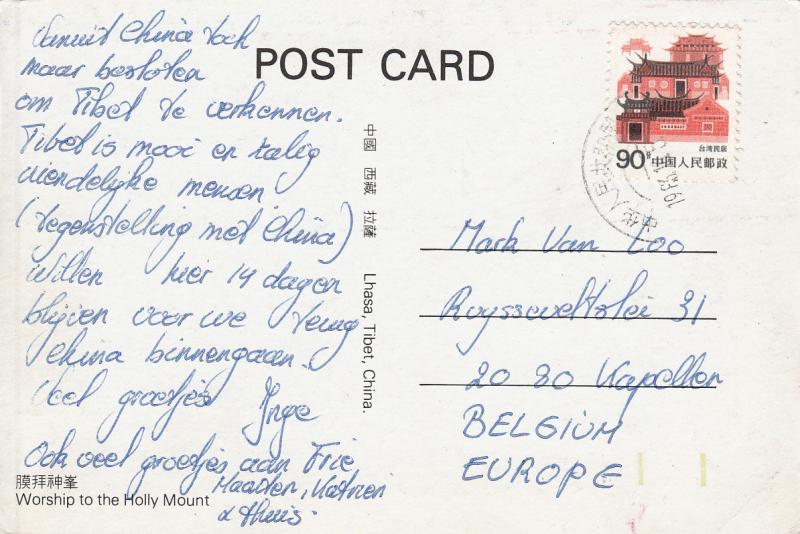 Vanuit China toch
maar besloten
om Tibet te verkennen.
Tibet is mooi en zalig
vriendelijke mensen
(tegenstelling met China)
Willen hier 14 dagen
blijven voor we terug
China binnengaan.
Veel groetjes Inge
Ook veel groetjes aan Frie
Maarten, Katrien
& thuis.
膜拜神峯
Worship to the Holly Mount
POST CARD
中國 西藏 拉薩 Lhasa, Tibet, China.
台湾民居
90分 中国人民邮政
Mark Van Loo
31
2080 Kapellen
BELGIUM
EUROPE